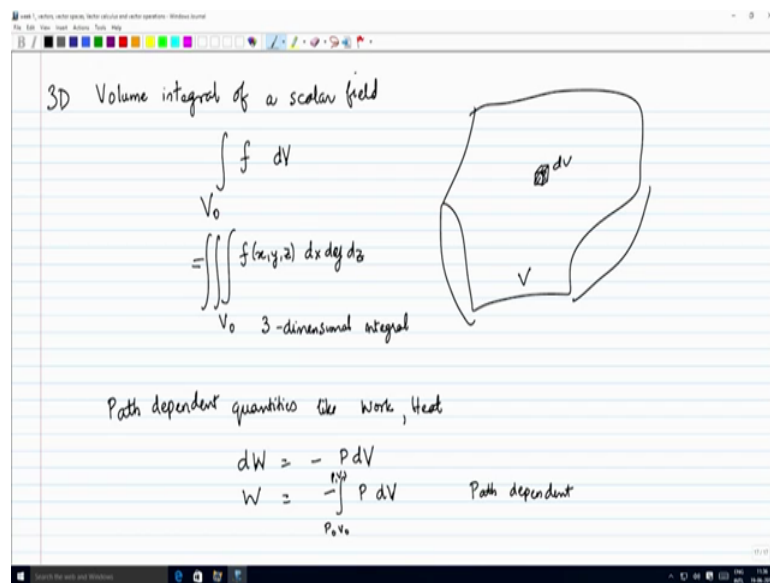 week 1_ vectors, vector spaces, Vector calculus and vector operations - Windows Journal
File Edit View Insert Actions Tools Help
3D Volume integral of a scalar field
∫ f dV
V₀
dv
= ∭ f(x,y,z) dx dy dz
V
V₀ 3-dimensional integral
Path dependent quantities like work, Heat
dW = - P dV
W = -∫ P dV Path dependent
P₀V₀
Search the web and Windows
ENG